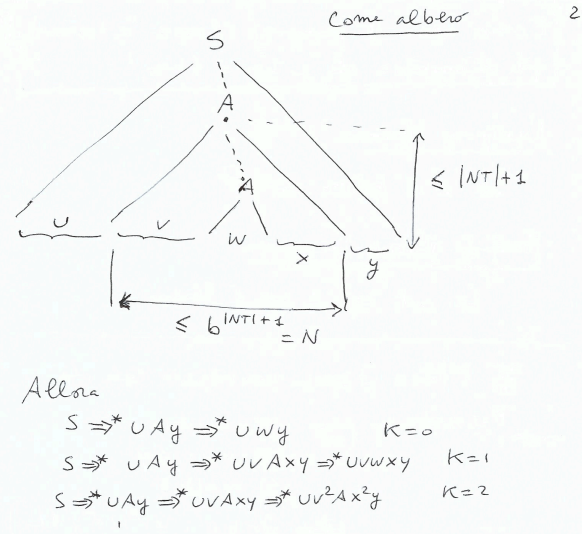 Come albero
2
S
A
≤ |NT|+1
A
u v w x y
≤ b^{|NT|+1} = N
Allora
S ⇒* uAy ⇒* uwy K=0
S ⇒* uAy ⇒* uvAxy ⇒* uvwxy K=1
S ⇒* uAy ⇒* uvAxy ⇒* uv²Ax²y K=2